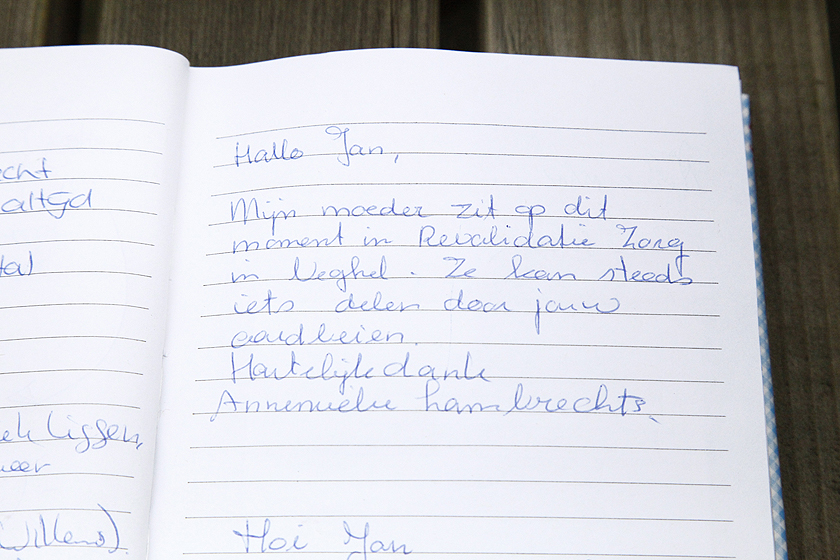 echt
altijd
Hallo Jan,
Mijn moeder zit op dit
moment in Revalidatie Zorg
in Veghel. Ze kan steeds
iets delen door jouw
aardbeien.
Hartelijke dank
Annemieke Lambrechts.
Lissen,
weer
Willems)
Hoi Jan